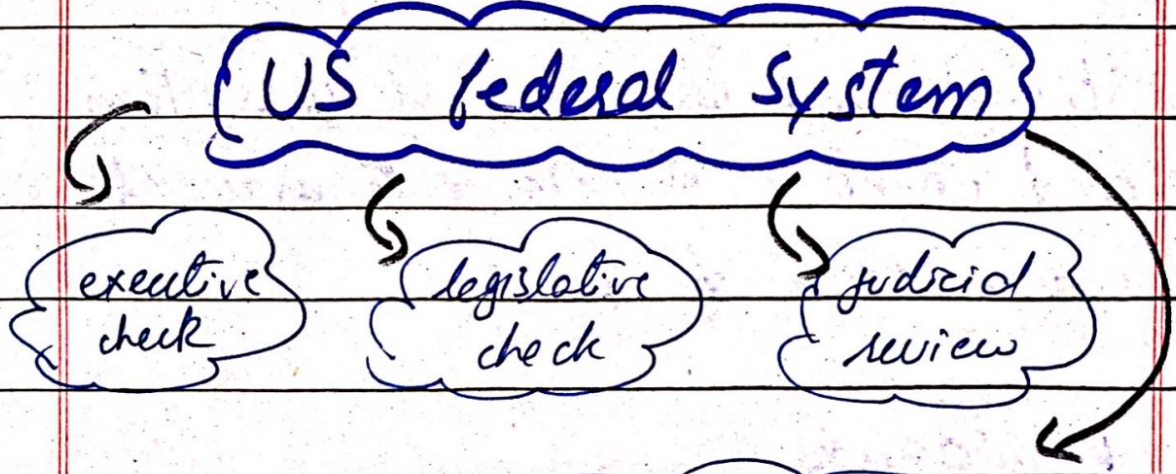 US federal System
executive
check
legislative
check
judicial
review